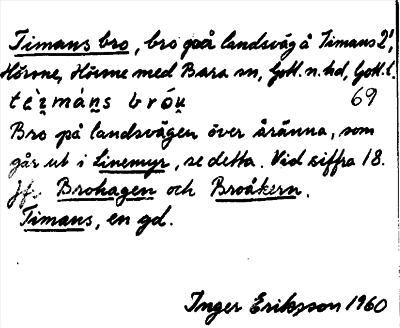 Timans bro, bro på landsväg å Timans 2¹,
Hörsne, Hörsne med Bara sn, Gotl. n. hd, Gotl. l.
té̀ı̨mán̥s brǫ́u̯ 69
Bro på landsvägen över åränna, som
går ut i Linemyr, se detta. Vid siffra 18.
Jfr Brohagen och Broåkern.
Timans, en gd.
Inger Eriksson 1960